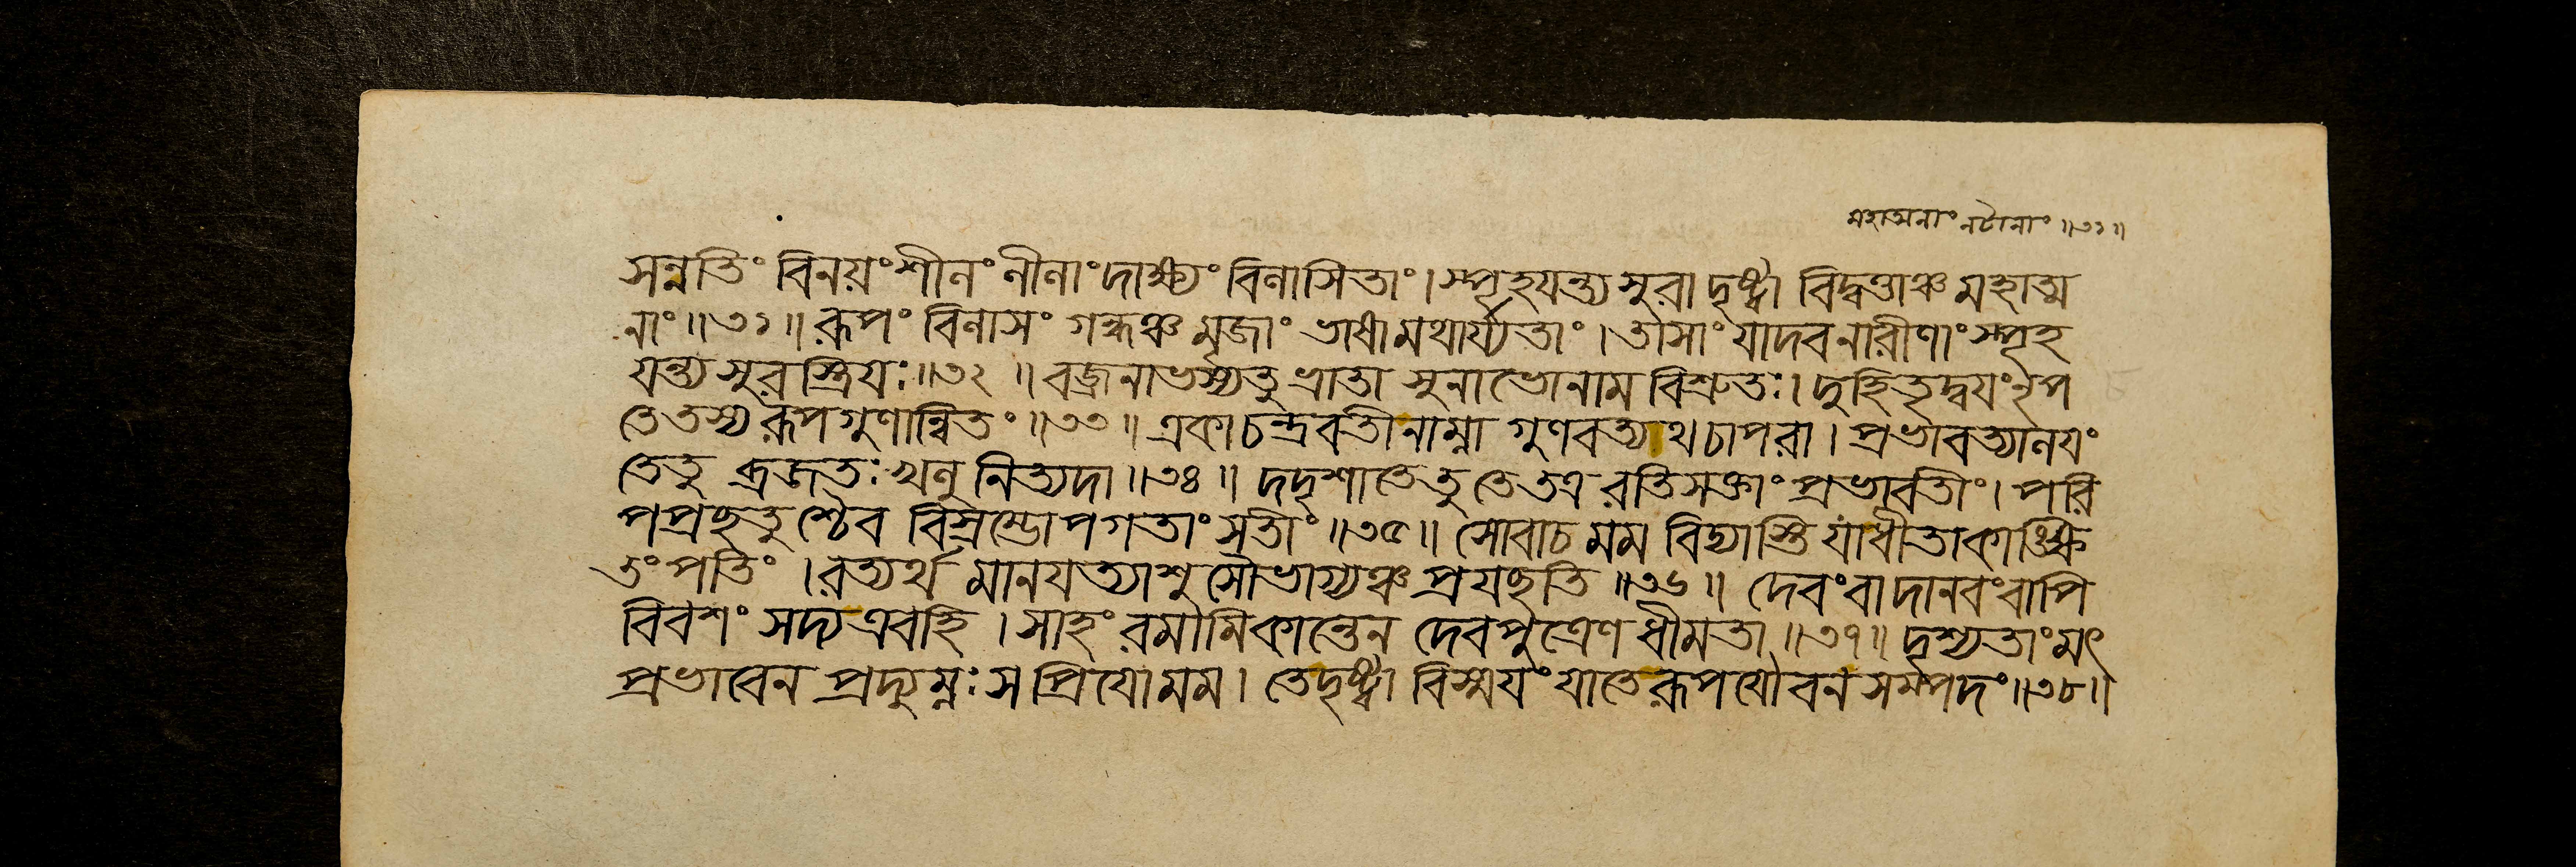 মহাত্মনাং নটানাং ॥৩১॥
সন্নতিং বিনয়ং শীলং লীলাং দাক্ষ্যং বিলাসিতাং । স্পৃহযন্ত্যসুরা দৃষ্ট্বা বিদ্বত্তাঞ্চ মহাত্ম
নাং ॥৩১॥ রূপং বিলাসং গন্ধঞ্চ মৃজাং ভাষামথার্য্যতাং । তাসাং যাদবনারীণাং স্পৃহ
যন্ত্যসুরস্ত্রিযঃ ॥৩২॥ বজ্রনাভস্যতু ভ্রাতা সুনাভোনাম বিশ্রুতঃ । দুহিতৃদ্বযং নৃপ
তে তস্য রূপগুণান্বিতং ॥৩৩॥ একা চন্দ্রবতী নাম্না গুণবত্যাথচাপরা । প্রভাবত্যালযং
তে তু ব্রজতঃ খলু নিত্যদা ॥৩৪॥ দদৃশাতে তু তে তত্র রতিসক্তাং প্রভাবতীং । পরি
পপ্রছতুশ্চৈব বিস্রম্ভোপগতাং সতীং ॥৩৫॥ সোবাচ মম বিদ্যাস্তি যাধীতা কাঙ্ক্ষি
তং পতিং । রত্যর্থ মানযত্যাশু সৌভাগ্যঞ্চ প্রযছতি ॥৩৬॥ দেবং বা দানবং বাপি
বিবশং সদ্য এবহি । সাহং রমামি কান্তেন দেবপুত্রেণ ধীমতা ॥৩৭॥ দৃশ্যতাং মৎ
প্রভাবেন প্রদ্যুম্নঃ স প্রিযোমম । তে দৃষ্ট্বা বিস্মযং যাতে রূপযৌবনসম্পদং ॥৩৮॥